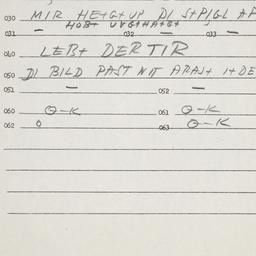 030 MIR HE+G+UP DI S+PIGL AF
HOB+ UVG+HA+G+
031 — 032 — 033 —
040 LEB+ DER TIR
050 DI BILD PAST NIT ARAJ+ I+DE
051 — 052 —
060 O-K 061 O-K
062 O 063 O-K